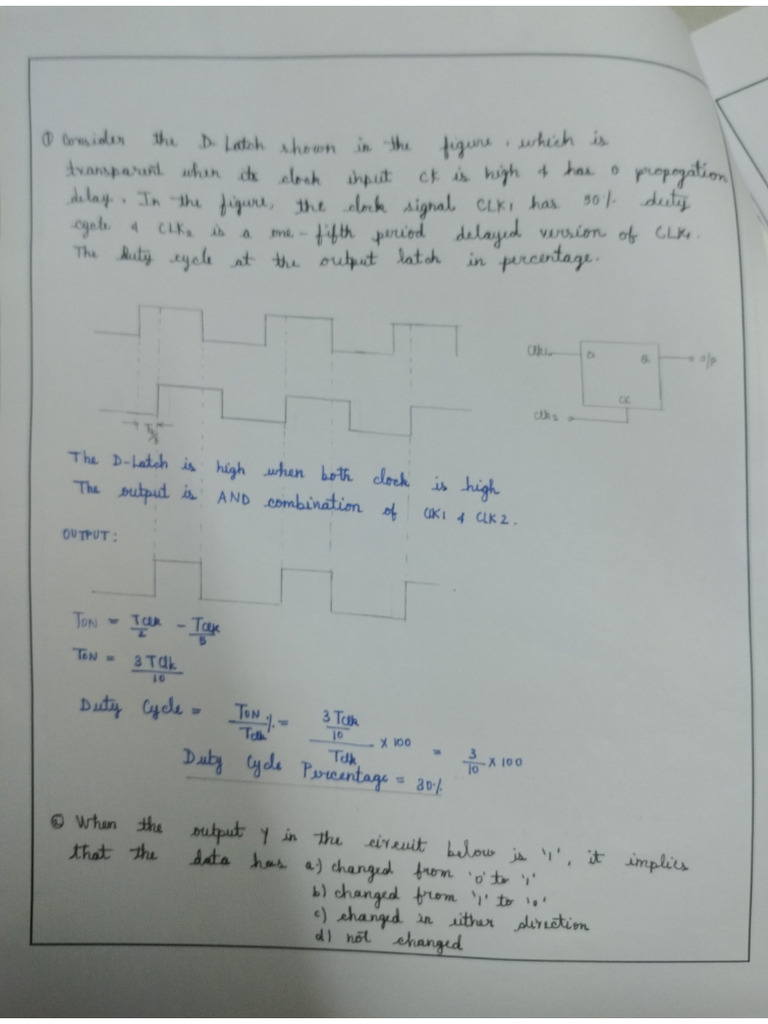 ① Consider the D-Latch shown in the figure, which is
transparent when its clock input CK is high & has 0 propogation
delay. In the figure, the clock signal CLK1 has 50% duty
cycle & CLK2 is a one-fifth period delayed version of CLK1.
The duty cycle at the output latch in percentage.
Clk1 D Q O/P
CK
Clk2
T/5
The D-Latch is high when both clock is high
The output is AND combination of CLK1 & CLK2.
OUTPUT:
TON = TClk/2 - TClk/5
TON = 3 TClk/10
Duty Cycle = TON/TClk % = (3 TClk/10)/TClk × 100 = 3/10 × 100
Duty Cycle Percentage = 30%
② When the output Y in the circuit below is '1', it implies
that the data has a) changed from '0' to '1'
b) changed from '1' to '0'
c) changed in either direction
d) not changed